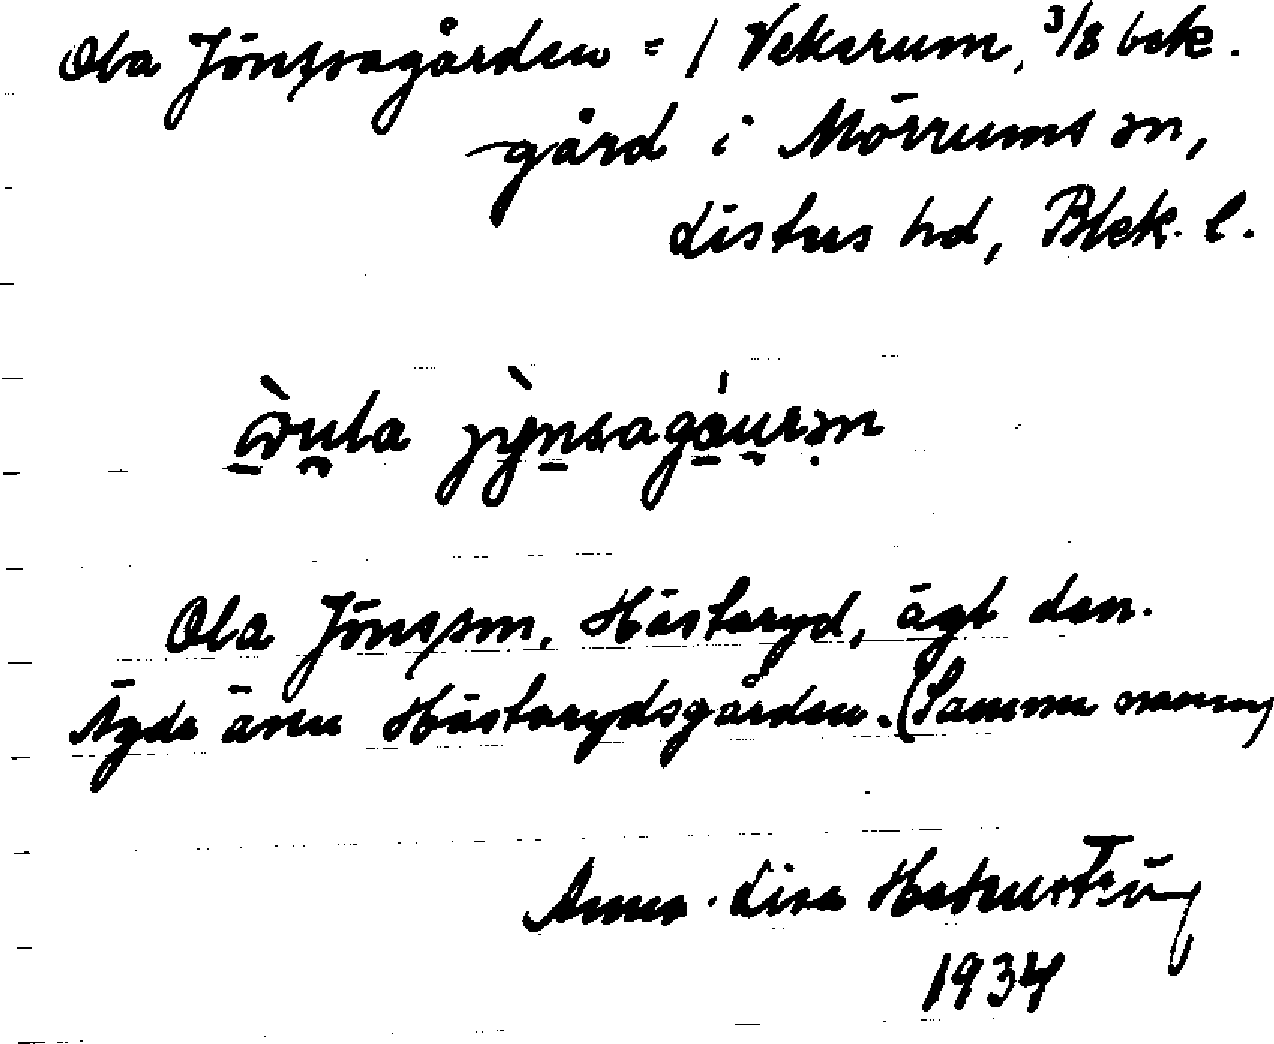 Ola Jönssagården = 1 Vekerum, 3/8 bek.
gård i Mörrums sn,
Listers hd, Blek. l.
Ola Jönsson, Hästaryd, ägt den.
Ägde även Hästarydsgården. (Samma namn)
Anna-Lisa
1934